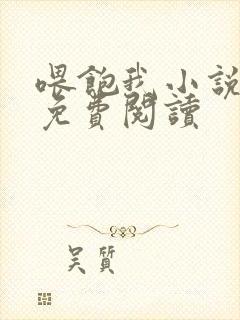 喂飽我小說
免費閱讀
吳質